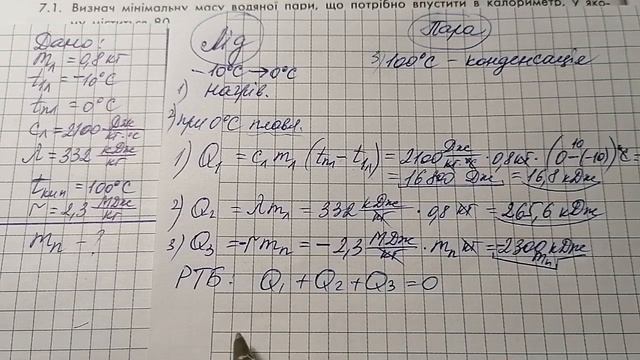 7.1. Визнач мінімальну масу водяної пари, що потрібно впустити в калориметр, у яко-
Дано:
m л = 0,8 кг
t1л = -10°C
tпл = 0°C
cл = 2100 Дж/кг·°C
λ = 332 кДж/кг
tкип = 100°C
r = 2,3 МДж/кг
mп - ?
Лід
-10°C → 0°C
1) нагрів.
2) при 0°C плавл.
Пара
3) 100°C - конденсація
1) Q1 = cл mл (tпл - t1л) = 2100 Дж/кг·°C · 0,8 кг · (0-(-10))°C =
10
= 16800 Дж = 16,8 кДж
2) Q2 = λ mл = 332 кДж/кг · 0,8 кг = 265,6 кДж
3) Q3 = -r mп = -2,3 МДж/кг · mп кг = -2300 кДж
mп
РТБ: Q1 + Q2 + Q3 = 0